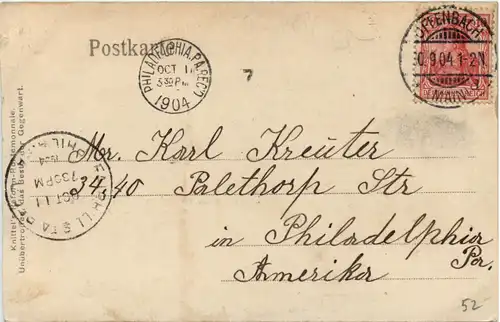 Postkarte
OFFENBACH
.9.04.1-2N
MAIN
PHILADELPHIA, PA. REC'D
OCT 11
3 30 PM
1904
7
Mr. Karl Kreuter
34,40 Palethorp Str
in Philadelphia
Pa.
Amerika
1904
7 30 PM
OCT 11
PHIL
STA
Unübertroffen, das Beste der Gegenwart.
52